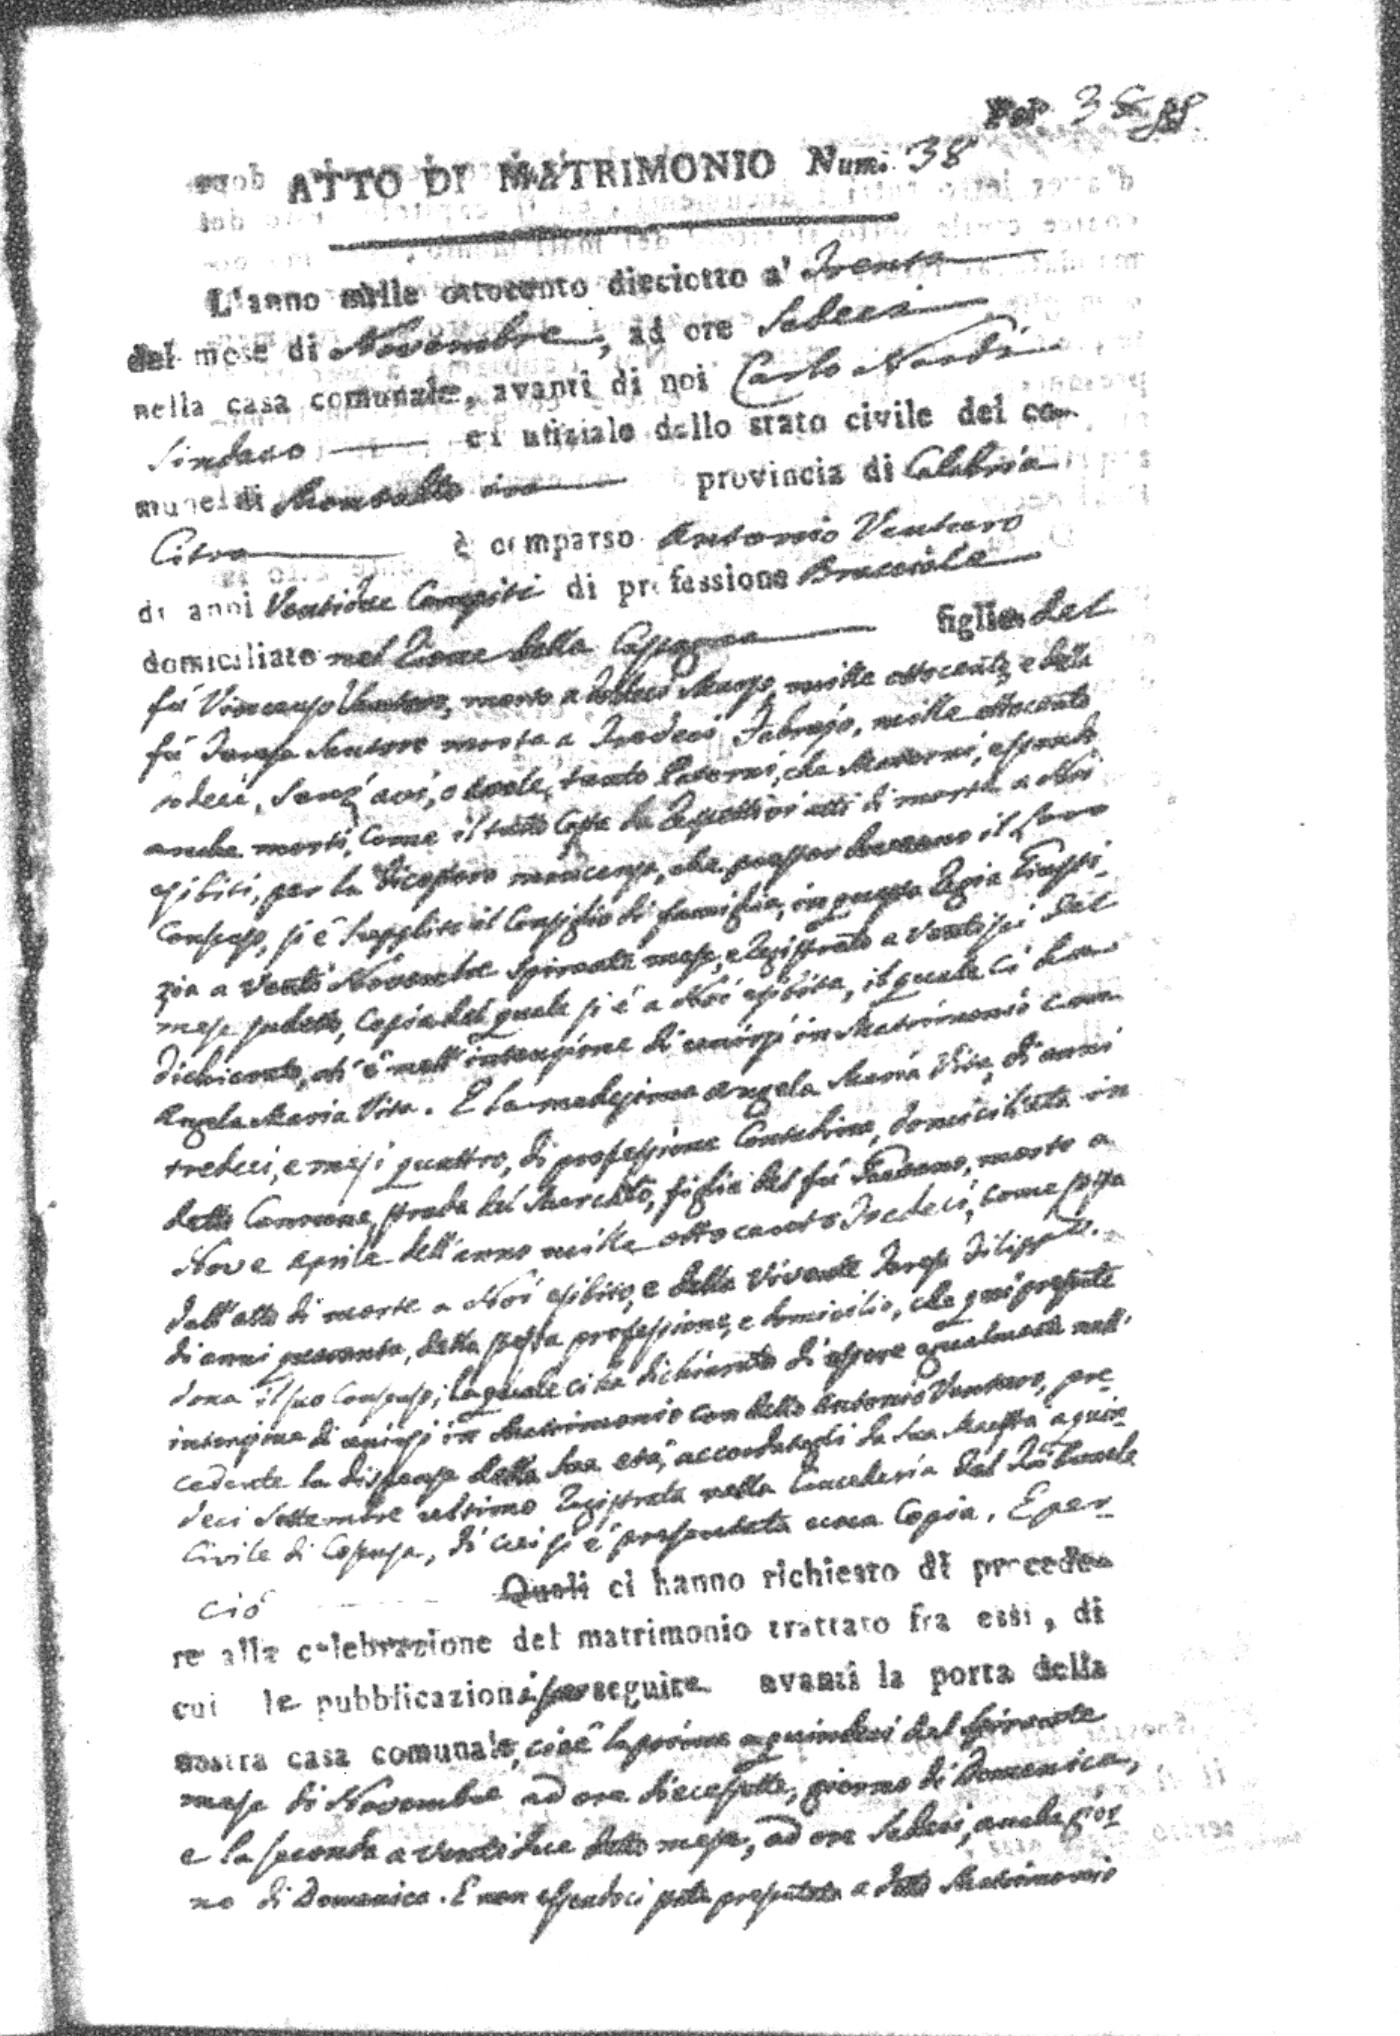 Fol. 38
ATTO DI MATRIMONIO Num. 38
L'anno mille ottocento dieciotto a' Trenta
del mese di Novembre, ad ore Sedeci
nella casa comunale, avanti di noi Carlo Nardi
Sindaco ed ufiziale dello stato civile del co-
mune di Montalto provincia di Calabria
Citra è comparso Antonio Venturo
di anni Ventidue Compiti di professione Bracciale
domiciliato nel Rione della figlio del
fù Vincenzo Venturo, morto a dodeci Marzo, mille ottocento, e della
fù Teresa Santoro morta a Tredeci Febrajo, mille ottocento
sedeci, senz' avi, o avole, tanto Paterni, che Materni, essendo
anche morti, come il tutto costa da rispettivi atti di morte a Noi
esibiti, per la di cui mancanza, che avessero il loro
Consenso, si è supplito il Consiglio di famiglia, in questa Regia Giusti-
zia a venti Novembre spirante mese, e registrato a ventisei del
mese sudetto, Copia del quale si è a Noi esibita, il quale ci ha
dichiarato, ch' è nell' intenzione di unirsi in Matrimonio con
Angela Maria Vita. E la medesima Angela Maria Vita, di anni
tredeci, e mesi quattro, di professione Contadina, domiciliata in
detto Comune, strada del Mercato, figlia del fù Gaetano, morto a
Nove Aprile dell' anno mille ottocento Tredeci, come costa
dall' atto di morte a Noi esibito, e della vivente Teresa
di anni quaranta, della stessa professione, e domicilio, che quì presente
dona il suo Consenso; la quale ci ha dichiarato di essere egualmente nell'
intenzione di unirsi in Matrimonio con detto Antonio Venturo, pre-
cedente la dispensa della sua età, accordatagli da Sua Maestà a quin-
deci Settembre ultimo registrata nella Cancelleria del Tribunale
Civile di Cosenza, di cui si è presentata una Copia. E per-
ciò Quali ci hanno richiesto di procede-
re alla celebrazione del matrimonio trattato fra essi, di
cui le pubblicazioni seguite avanti la porta della
nostra casa comunale, cioè la prima a quindeci del spirante
mese di Novembre ad ore diecessette, giorno di Domenica,
e la seconda a ventidue detto mese, ad ore Sedeci, anche gior
no di Domenica. E non essendoci stata presentata a detto Matrimonio